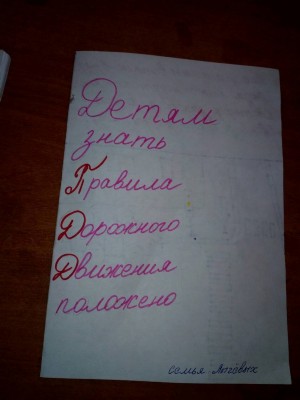 Детям
знать
Правила
Дорожного
Движения
положено
семья